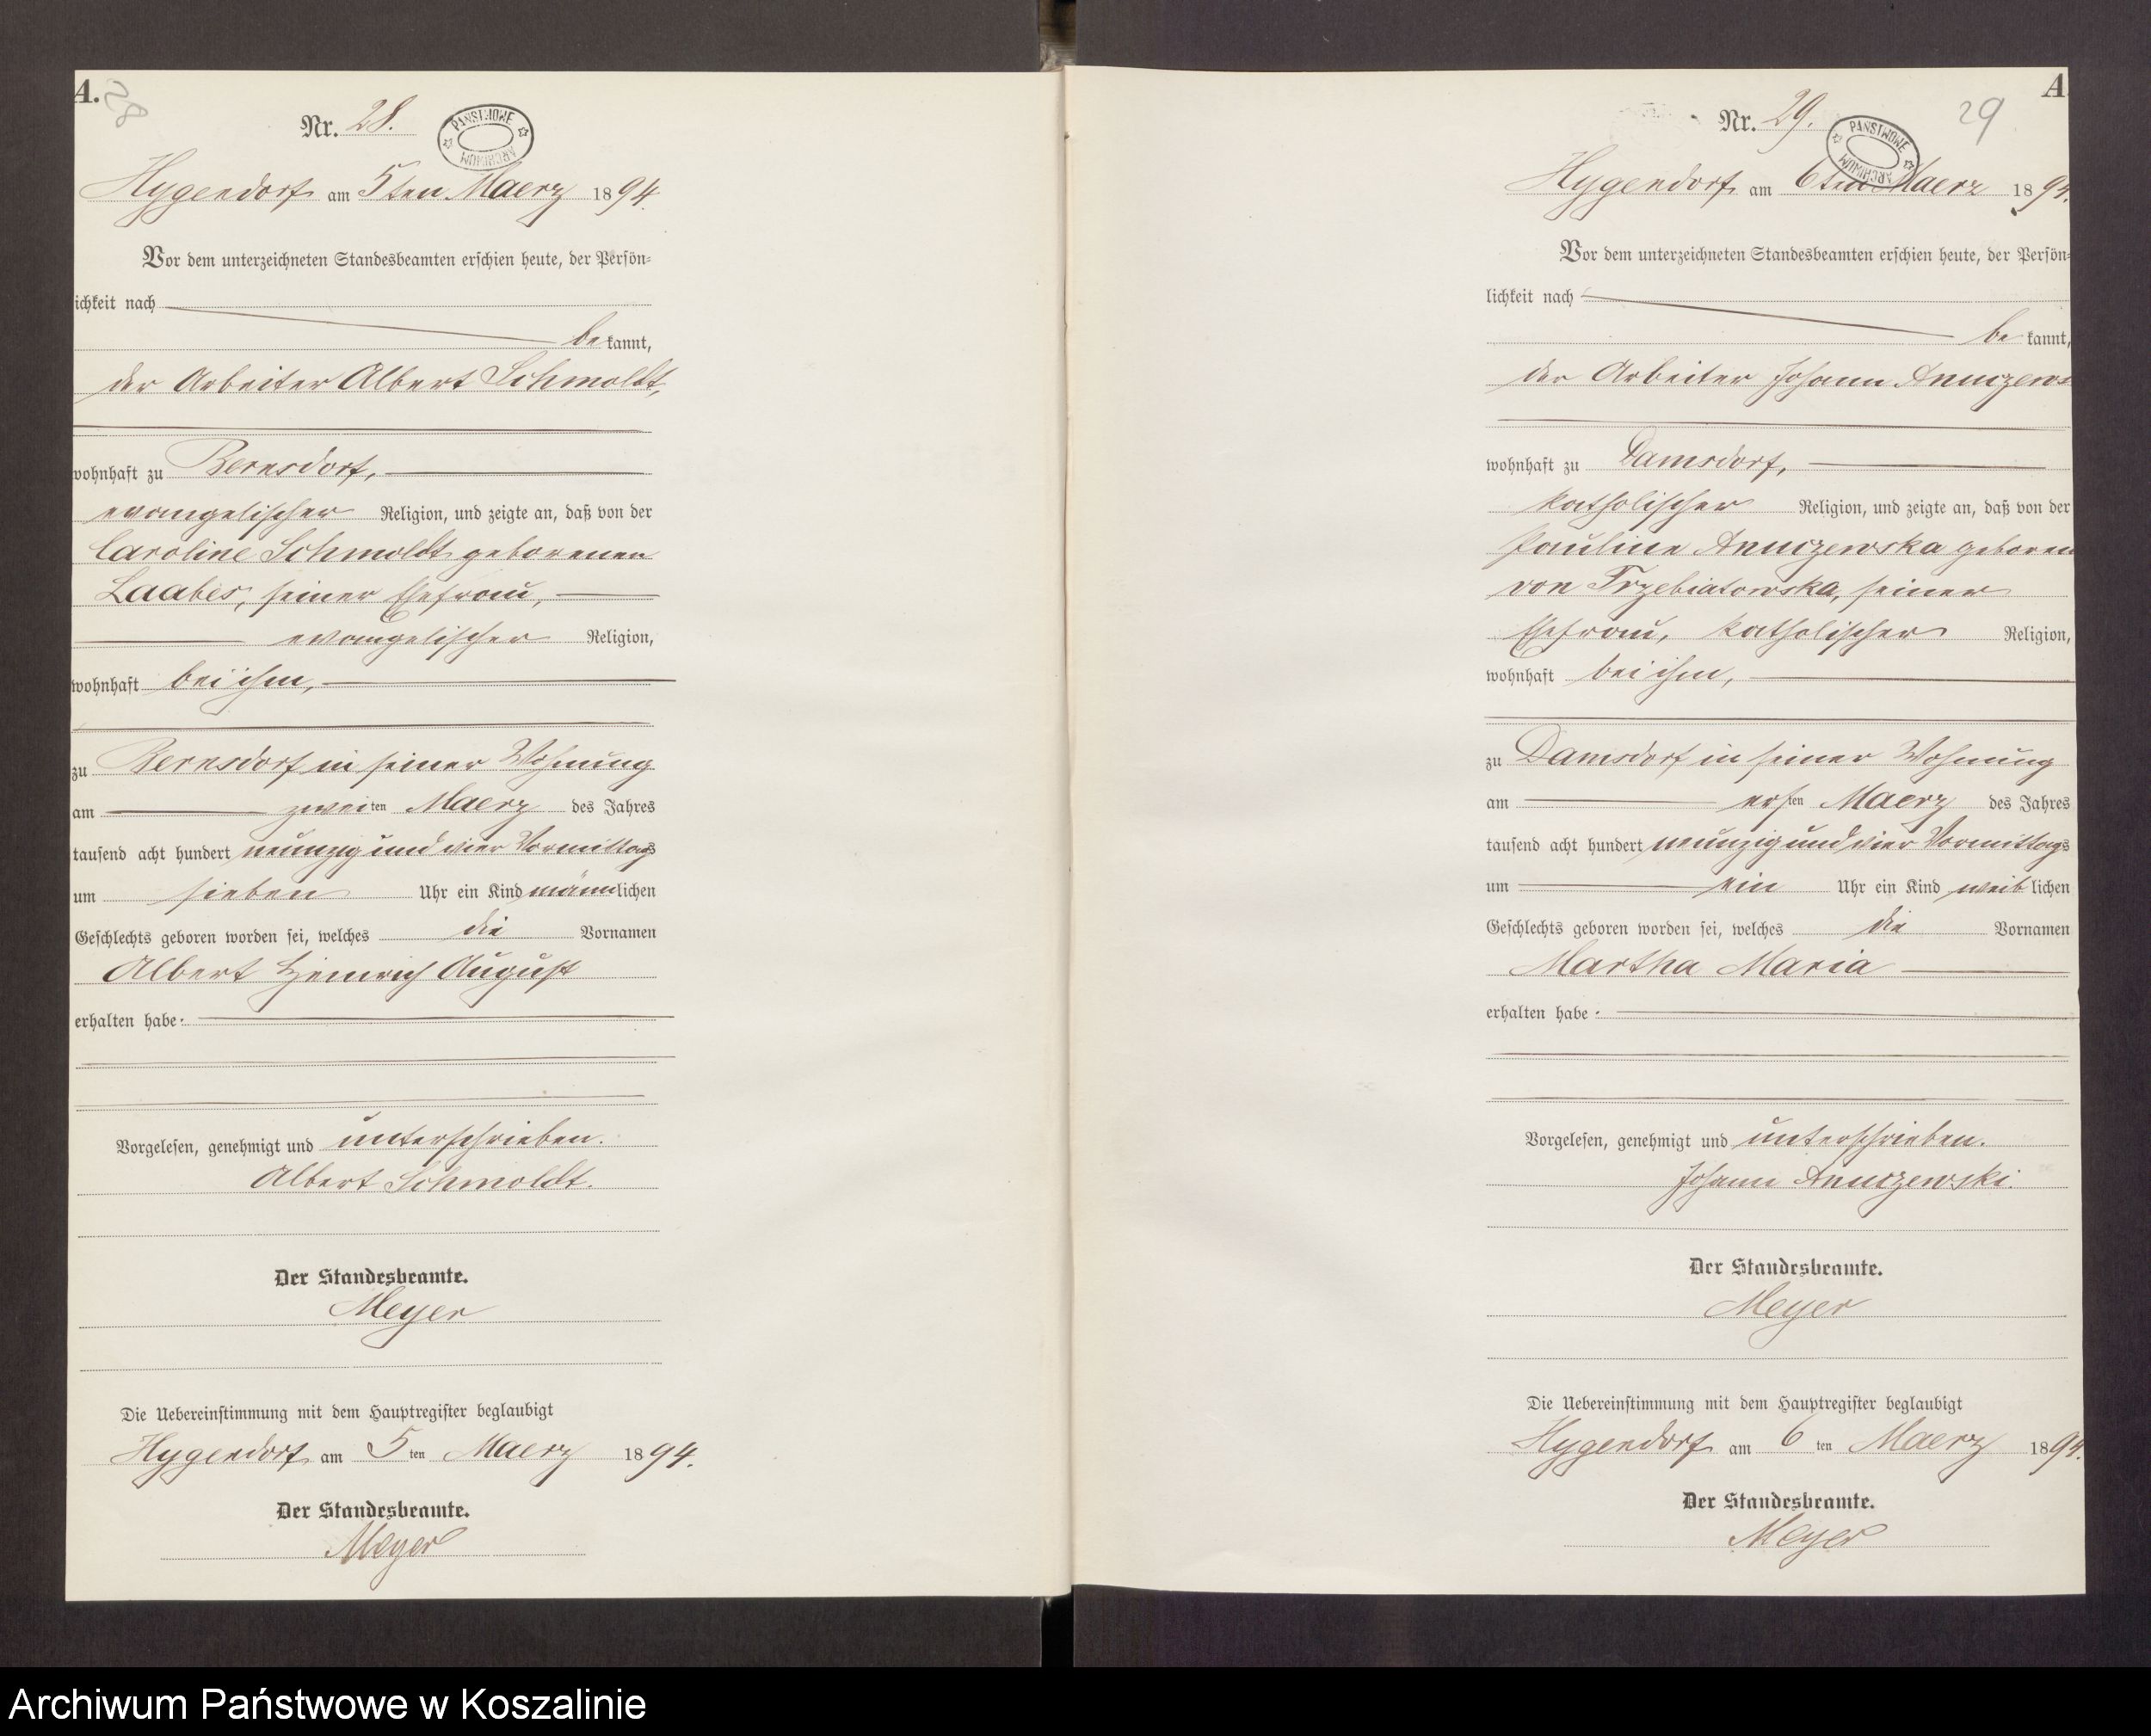 A.
28
Nr. 28.
PAŃSTWOWE ARCHIWUM
Hygendorf am 5ten Maerz 1894.
Vor dem unterzeichneten Standesbeamten erschien heute, der Persön-
ichkeit nach
bekannt,
der Arbeiter Albert Schmoldt,
wohnhaft zu Bernsdorf,
evangelischer Religion, und zeigte an, daß von der
Caroline Schmoldt geborenen
Laabes, seiner Ehefrau,
evangelischer Religion,
wohnhaft bei ihm,
zu Bernsdorf in seiner Wohnung
am zweiten Maerz des Jahres
tausend acht hundert neunzig und vier Vormittags
um sieben Uhr ein Kind männlichen
Geschlechts geboren worden sei, welches die Vornamen
Albert Heinrich August
erhalten habe.
Vorgelesen, genehmigt und unterschrieben.
Albert Schmoldt.
Der Standesbeamte.
Meyer
Die Uebereinstimmung mit dem Hauptregister beglaubigt
Hygendorf am 5ten Maerz 1894.
Der Standesbeamte.
Meyer
A
29
Nr. 29.
PAŃSTWOWE ARCHIWUM
Hygendorf am 6ten Maerz 1894.
Vor dem unterzeichneten Standesbeamten erschien heute, der Persön-
lichkeit nach
bekannt,
der Arbeiter Johann
wohnhaft zu Damsdorf,
katholischer Religion, und zeigte an, daß von der
Pauline Anuczewska geboren
von Trzebiatowska, seiner
Ehefrau, katholischer Religion,
wohnhaft bei ihm,
zu Damsdorf in seiner Wohnung
am ersten Maerz des Jahres
tausend acht hundert neunzig und vier Vormittags
um ein Uhr ein Kind weiblichen
Geschlechts geboren worden sei, welches die Vornamen
Martha Maria
erhalten habe.
Vorgelesen, genehmigt und unterschrieben.
Johann Anuczewski.
Der Standesbeamte.
Meyer
Die Uebereinstimmung mit dem Hauptregister beglaubigt
Hygendorf am 6ten Maerz 1894.
Der Standesbeamte.
Meyer
Archiwum Państwowe w Koszalinie